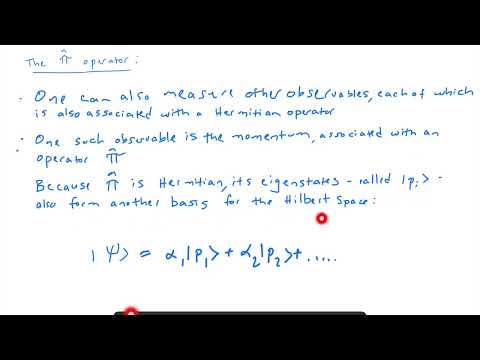 The π̂ operator:
· One can also measure other observables, each of which
is also associated with a Hermitian operator
· One such observable is the momentum, associated with an
operator π̂
· Because π̂ is Hermitian, its eigenstates - called |pᵢ> -
also form another basis for the Hilbert Space:
|Ψ> = α₁|p₁> + α₂|p₂> + .....